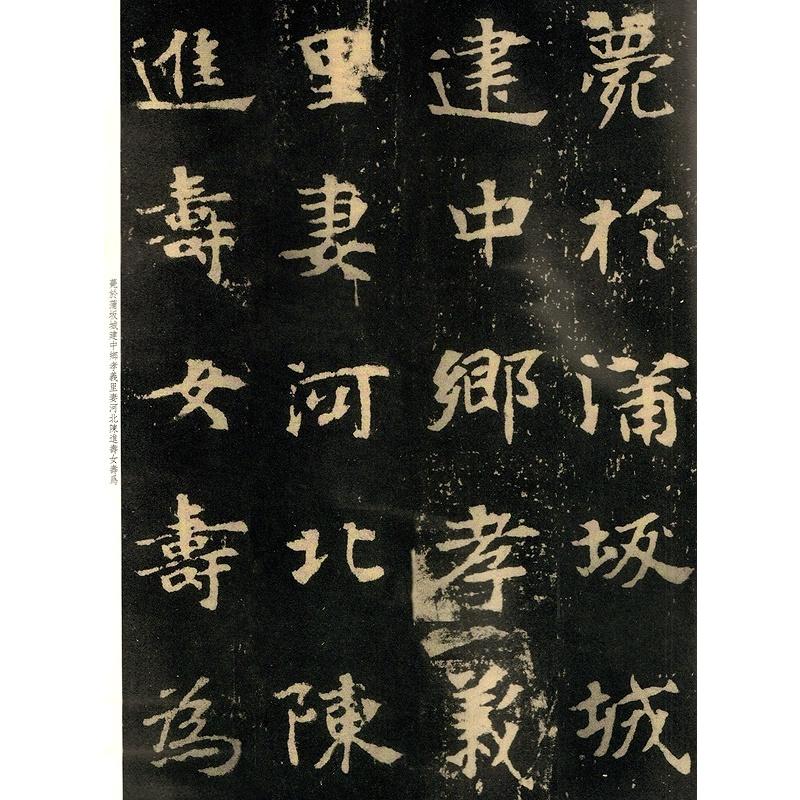 薨於蒲坂城
建中鄉孝義
里妻河北陳
進壽女壽為
薨於蒲坂城建中鄉孝義里妻河北陳進壽女壽爲